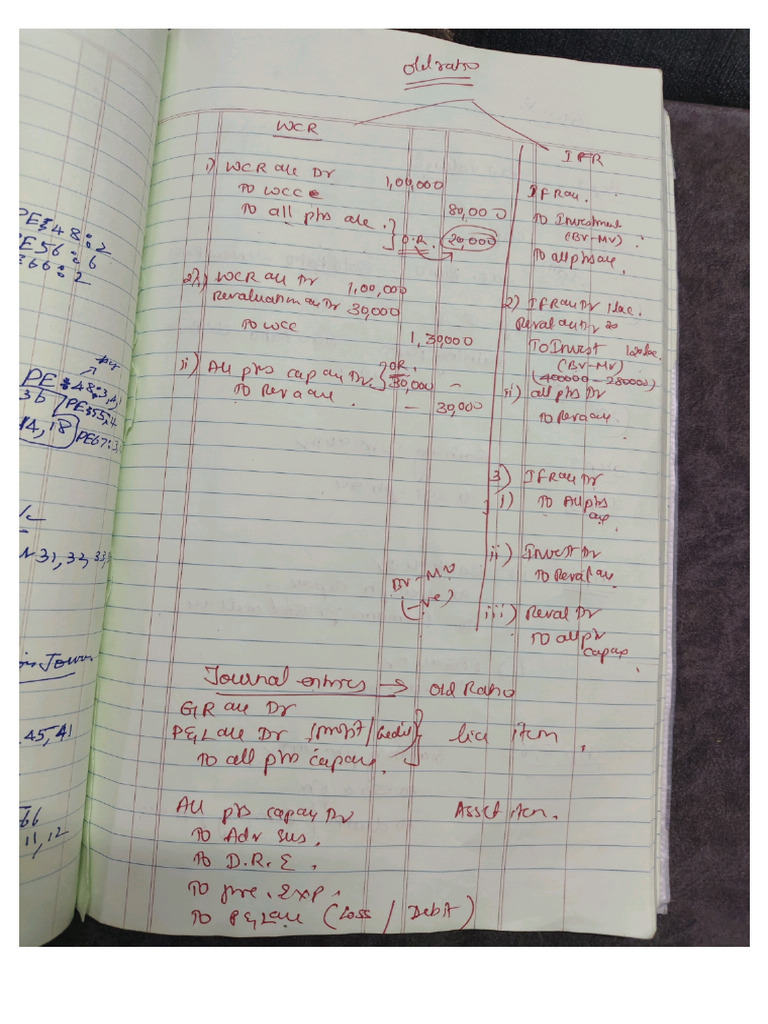 PE 48:2
PE56:6
66:2
PE 48:3,4,
36 PE55:4
14, 18 PE67:3,
31, 32, 33,
45, 41
66
11, 12
Old ratio
WCR
i) WCR a/c Dr 1,00,000
To WCC 80,000
To all ptrs a/c. } O.R. 20,000
2)i) WCR a/c Dr 1,00,000
Revaluation a/c Dr 30,000
To WCC 1,30,000
ii) All ptrs cap a/c Dr } OR. 30,000 -
To Reva a/c. - 30,000
IFR
IFR a/c.
To Investment
(BV-MV)
To all ptrs a/c.
2) IFR a/c Dr 1 lac.
Reval a/c Dr 20
To Invest 120 lac.
(BV-MV)
(400000 - 280000)
ii) all ptrs Dr
To Reva a/c.
3) IFR a/c Dr
i) To All ptrs cap.
ii) Invest Dr
To Reval a/c.
BV-MV
(-ve)
iii) Reval Dr
To all ptr
cap a/c
Journal entries → Old Ratio
G/R a/c Dr
P&L a/c Dr (profit/Credit) } lia item.
To all ptrs cap a/c.
All ptrs cap a/c Dr Asset item.
To Adv sus.
To D.R.E.
To pre. Exp.
To P&L a/c (Loss / Debit)